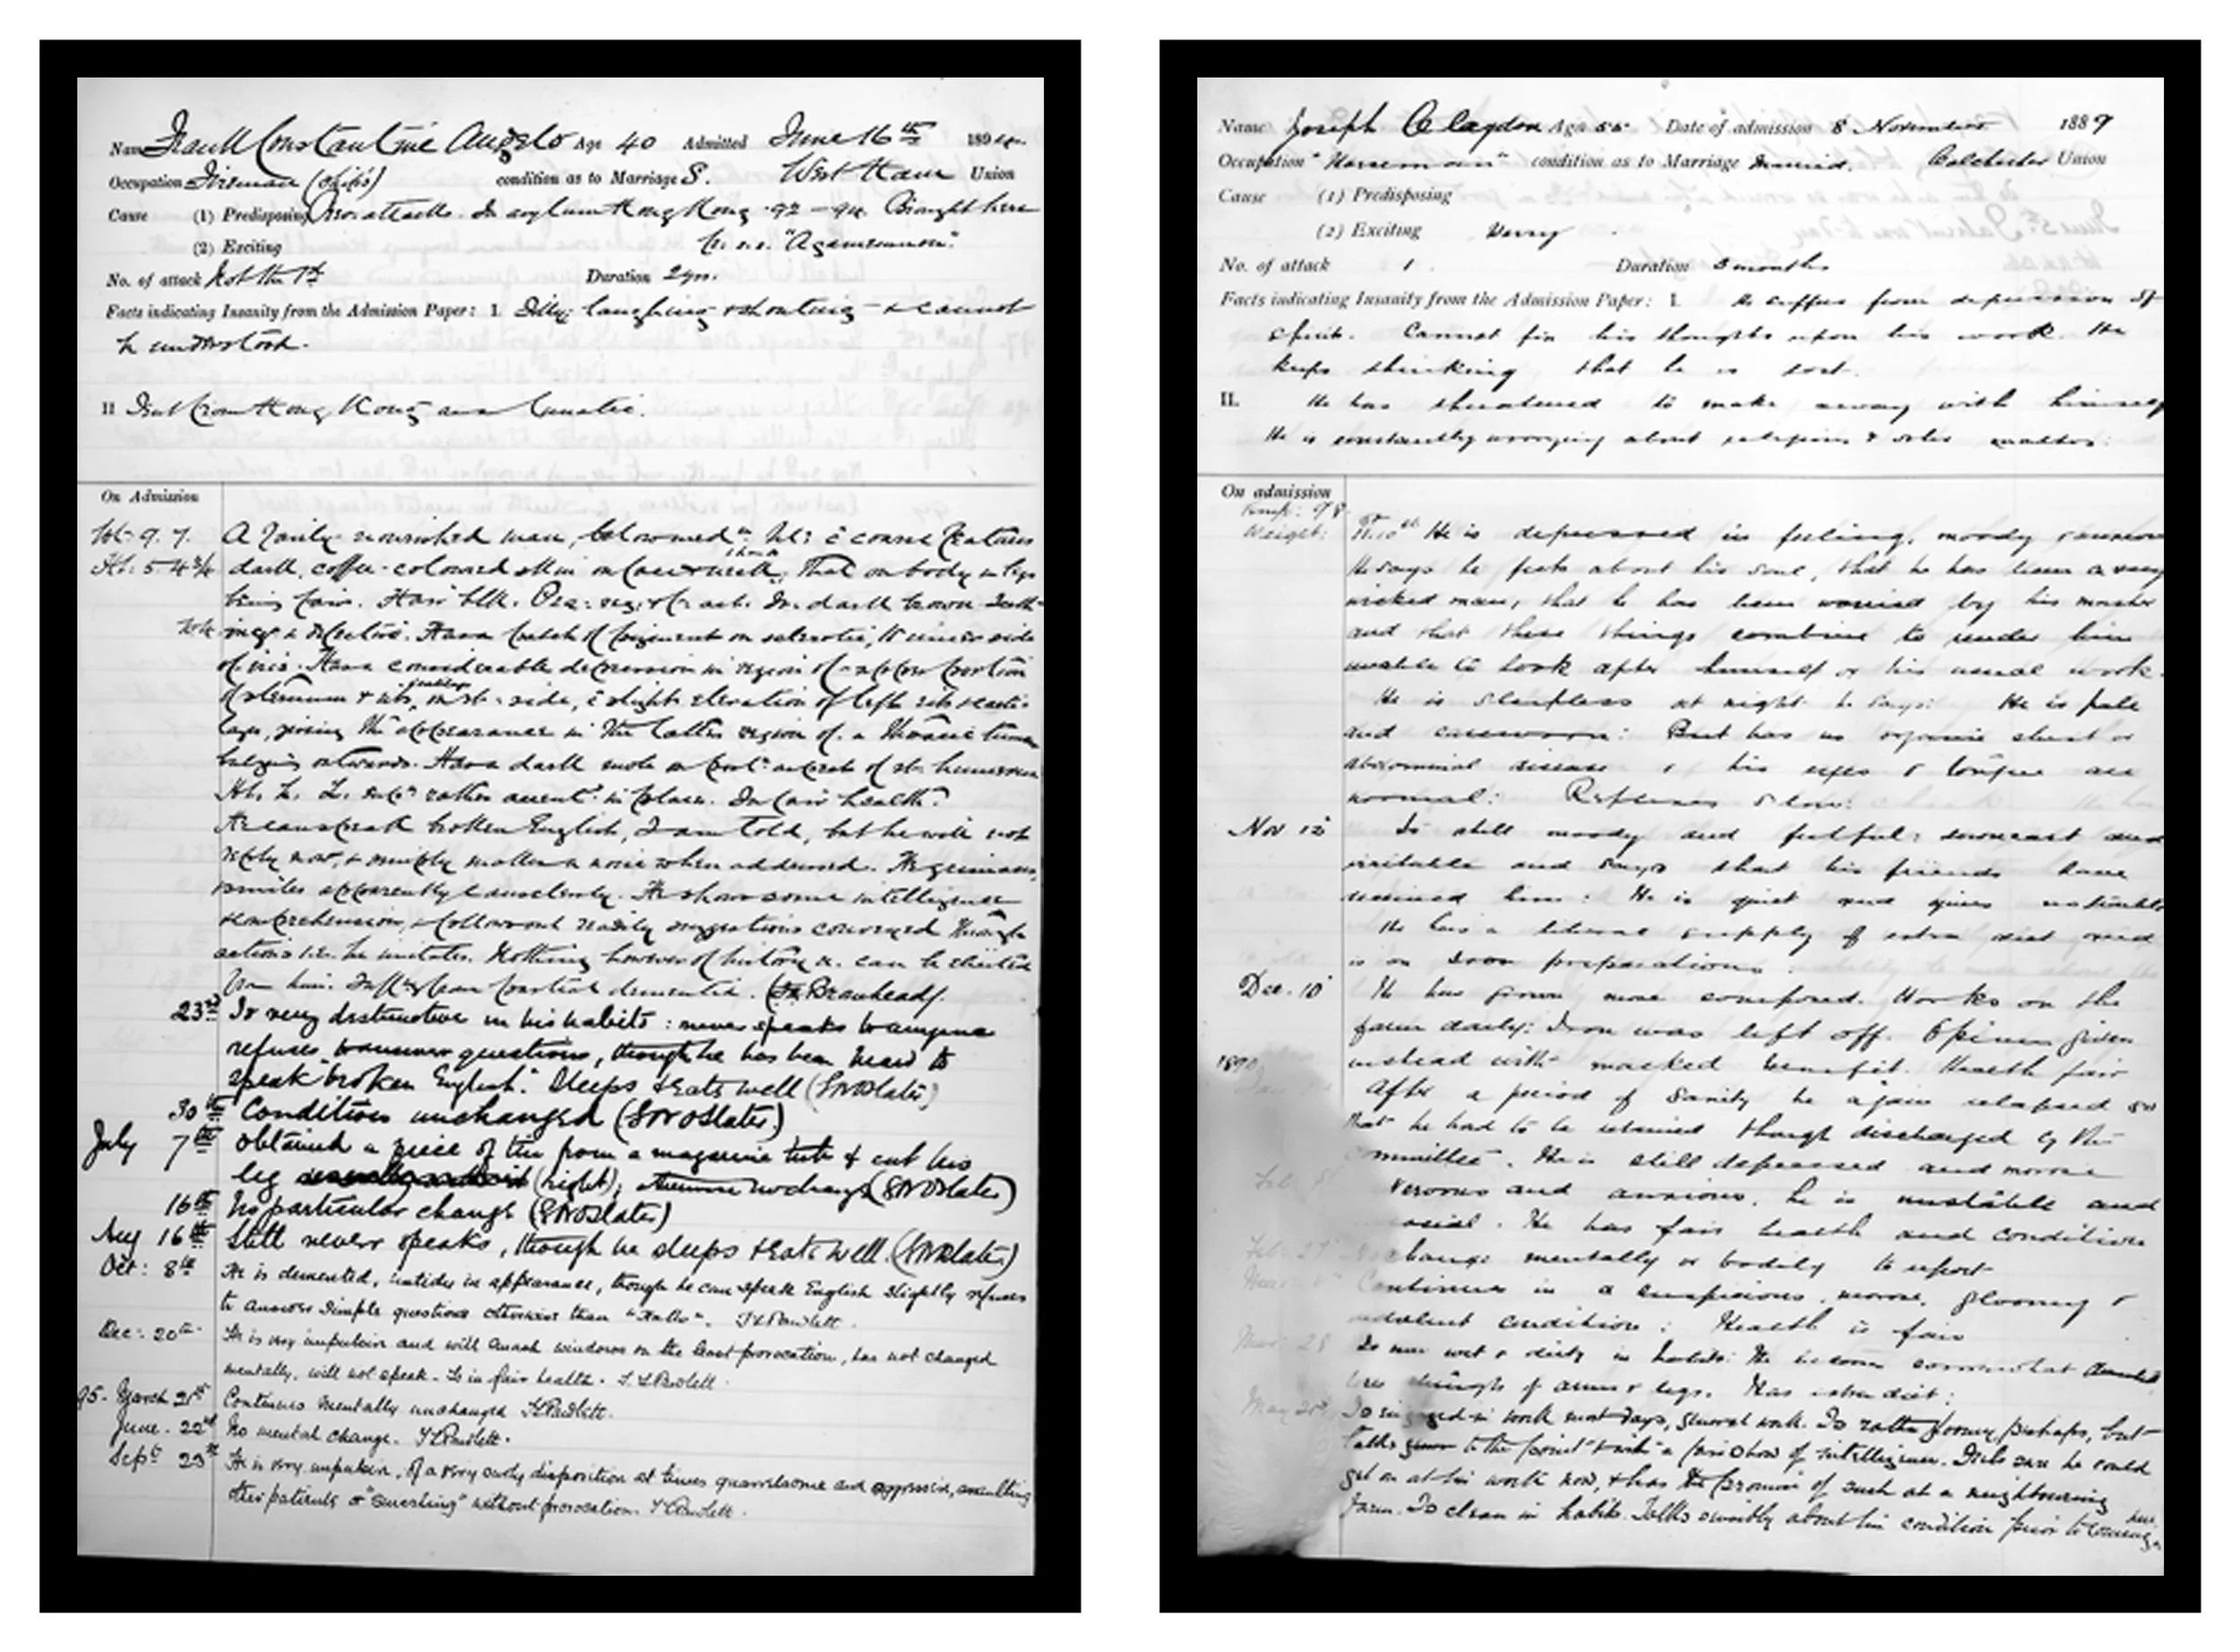 Name Frank Constantine Angelo Age 40 Admitted June 16th 1894
Occupation Fireman (ships) condition as to Marriage S. West Ham Union
Cause (1) Predisposing Prev. attacks. In asylum Hong Kong 92 – 94. Brought here
(2) Exciting by s.s. "Agamemnon".
No. of attack Not the 1st Duration 2 yrs.
Facts indicating Insanity from the Admission Paper: I. Silly: laughing & shouting – & cannot
be understood.
II Sent from Hong Kong as a lunatic.
On Admission
Wt. 9. 7. A fairly nourished man, c coarse features
Ht. 5. 4 3/4 dark, coffee-coloured skin on face & neck, That on body & legs
being fair. Hair blk. dark brown. Teeth
defective. Has a patch of pigment on sclerotic, to inner side
of iris. Has a considerable depression in region of upper portion
of sternum & ribs, on rt. side, c slight elevation of left ribs & carti-
lages, giving the appearance in the latter region of a thoracic tumour
bulging outwards. Has a dark mole on aspect of rt. humerus
Ht. L. rather accent. in place. In fair health.
He can speak broken English, I am told, but he will not
reply now, & simply makes a noise when addressed. He grimaces,
& smiles apparently causelessly. He shows some intelligence
& comprehension, & follows out readily suggestions conveyed through
actions i.e. he imitates. Nothing however of history &c. can be elicited
from him. Suffers from partial dementia.
23rd Is very destructive in his habits: never speaks to anyone
refuses to answer questions, though he has been heard to
speak broken English. Sleeps & eats well
30th Condition unchanged
July 7th Obtained a piece of tin from a magazine & cut his
leg (right); no change
16th No particular change
Aug 16th Still never speaks, though he sleeps & eats well.
Oct: 8th He is demented, untidy in appearance, though he can speak English slightly refuses
to answer simple questions otherwise than "Hallo".
Dec: 20th He is very impulsive and will smash windows on the least provocation, has not changed
mentally, will not speak. Is in fair health.
95. March 21st Continues mentally unchanged
June. 22nd No mental change.
Sept 23rd He is very impulsive, of a very surly disposition at times quarrelsome and aggressive, assaulting
other patients or "swearing" without provocation.
Name Joseph Claydon Age 55 Date of admission 8 November 1889
Occupation "Horseman" condition as to Marriage Married. Colchester Union
Cause (1) Predisposing
(2) Exciting Worry
No. of attack 1. Duration 3 months
Facts indicating Insanity from the Admission Paper: I. He suffers from depression of
spirits. Cannot fix his thoughts upon his work. He
keeps thinking that he is lost.
II. He has threatened to make away with himself
He is constantly worrying about religion & other matters.
On admission
Temp: 98
Weight: He is depressed in feeling, moody
He says he frets about his soul, that he has been a very
wicked man, that he has been worried by his master
and that these things combine to render him
unable to look after himself or his usual work.
He is sleepless at night he says: He is pale
and careworn: But has no organic chest or
abdominal disease & his eyes & tongue are
normal: Reflexes slow:
Nov 12 Is still moody and fretful; downcast and
irritable and says that his friends have
ruined him: He is quiet and gives no trouble
He has a liberal supply of extra diet and
is on Iron preparations.
Dec. 10 He has grown more composed. Works on the
farm daily: Iron was left off. Opium given
instead with marked benefit. Health fair
1890 After a period of Sanity he again relapsed so
that he had to be retained though discharged by the
committee. He is still depressed and morose
nervous and anxious. he is unstable and
He has fair health and condition
change mentally or bodily to report
Continues in a suspicious, morose, gloomy &
indolent condition: Health is fair
Mar: 28 Is now wet & dirty in habits: He became somewhat
strength of arms & legs. Has extra diet:
May Is engaged in work most days, general work. Is rather gloomy, perhaps, but
talks to the point & with a fair show of intelligence. Feels sure he could
get on at his work now, & has the promise of such at a neighbouring
farm. Is clean in habits. Talks sensibly about his condition prior to coming here.